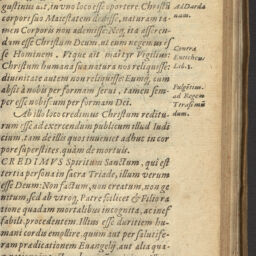 gustinus ait, in vno loco esse oportere. Christi
corpori suo Maiestatem dedisse, naturam ta-
men Corporis non ademisse. Neq, ita esse cre-
dam esse Christum Deum, ut eum negemus es
se Hominem. Vtque ait martyr Vigilius:
Christum humana sua natura nos reliquisse:
diuinitate autem non reliquisse: Eumq, cum
absit à nobis per formam serui, tamen sem-
per esse nobiscum per formam Dei.
Ab illo loco credimus Christum reditu-
rum esse ad exercendum publicum illud Iudi
cium, tam de illis quos inueniet adhuc in cor
pore superstites, quàm de mortuis.
CREDIMVS Spiritum Sanctum, qui est
tertia persona in sacra Triade, illum verum
esse Deum: Non factum, non creatum, non ge
nitum, sed ab vtroq, Patre scilicet & Filio ra
tione quadam mortalibus incognita, ac inef
fabile procedentem. Illius esse duritiem hu-
mani cordis emollire, quum aut per salutife-
ram prædicationem Euangelij, aut alia qua-
Ad Darda
num.
Contra
Eutichen
Lib. 1.
Fulgentius.
ad Regem
Trasimũ
dum.